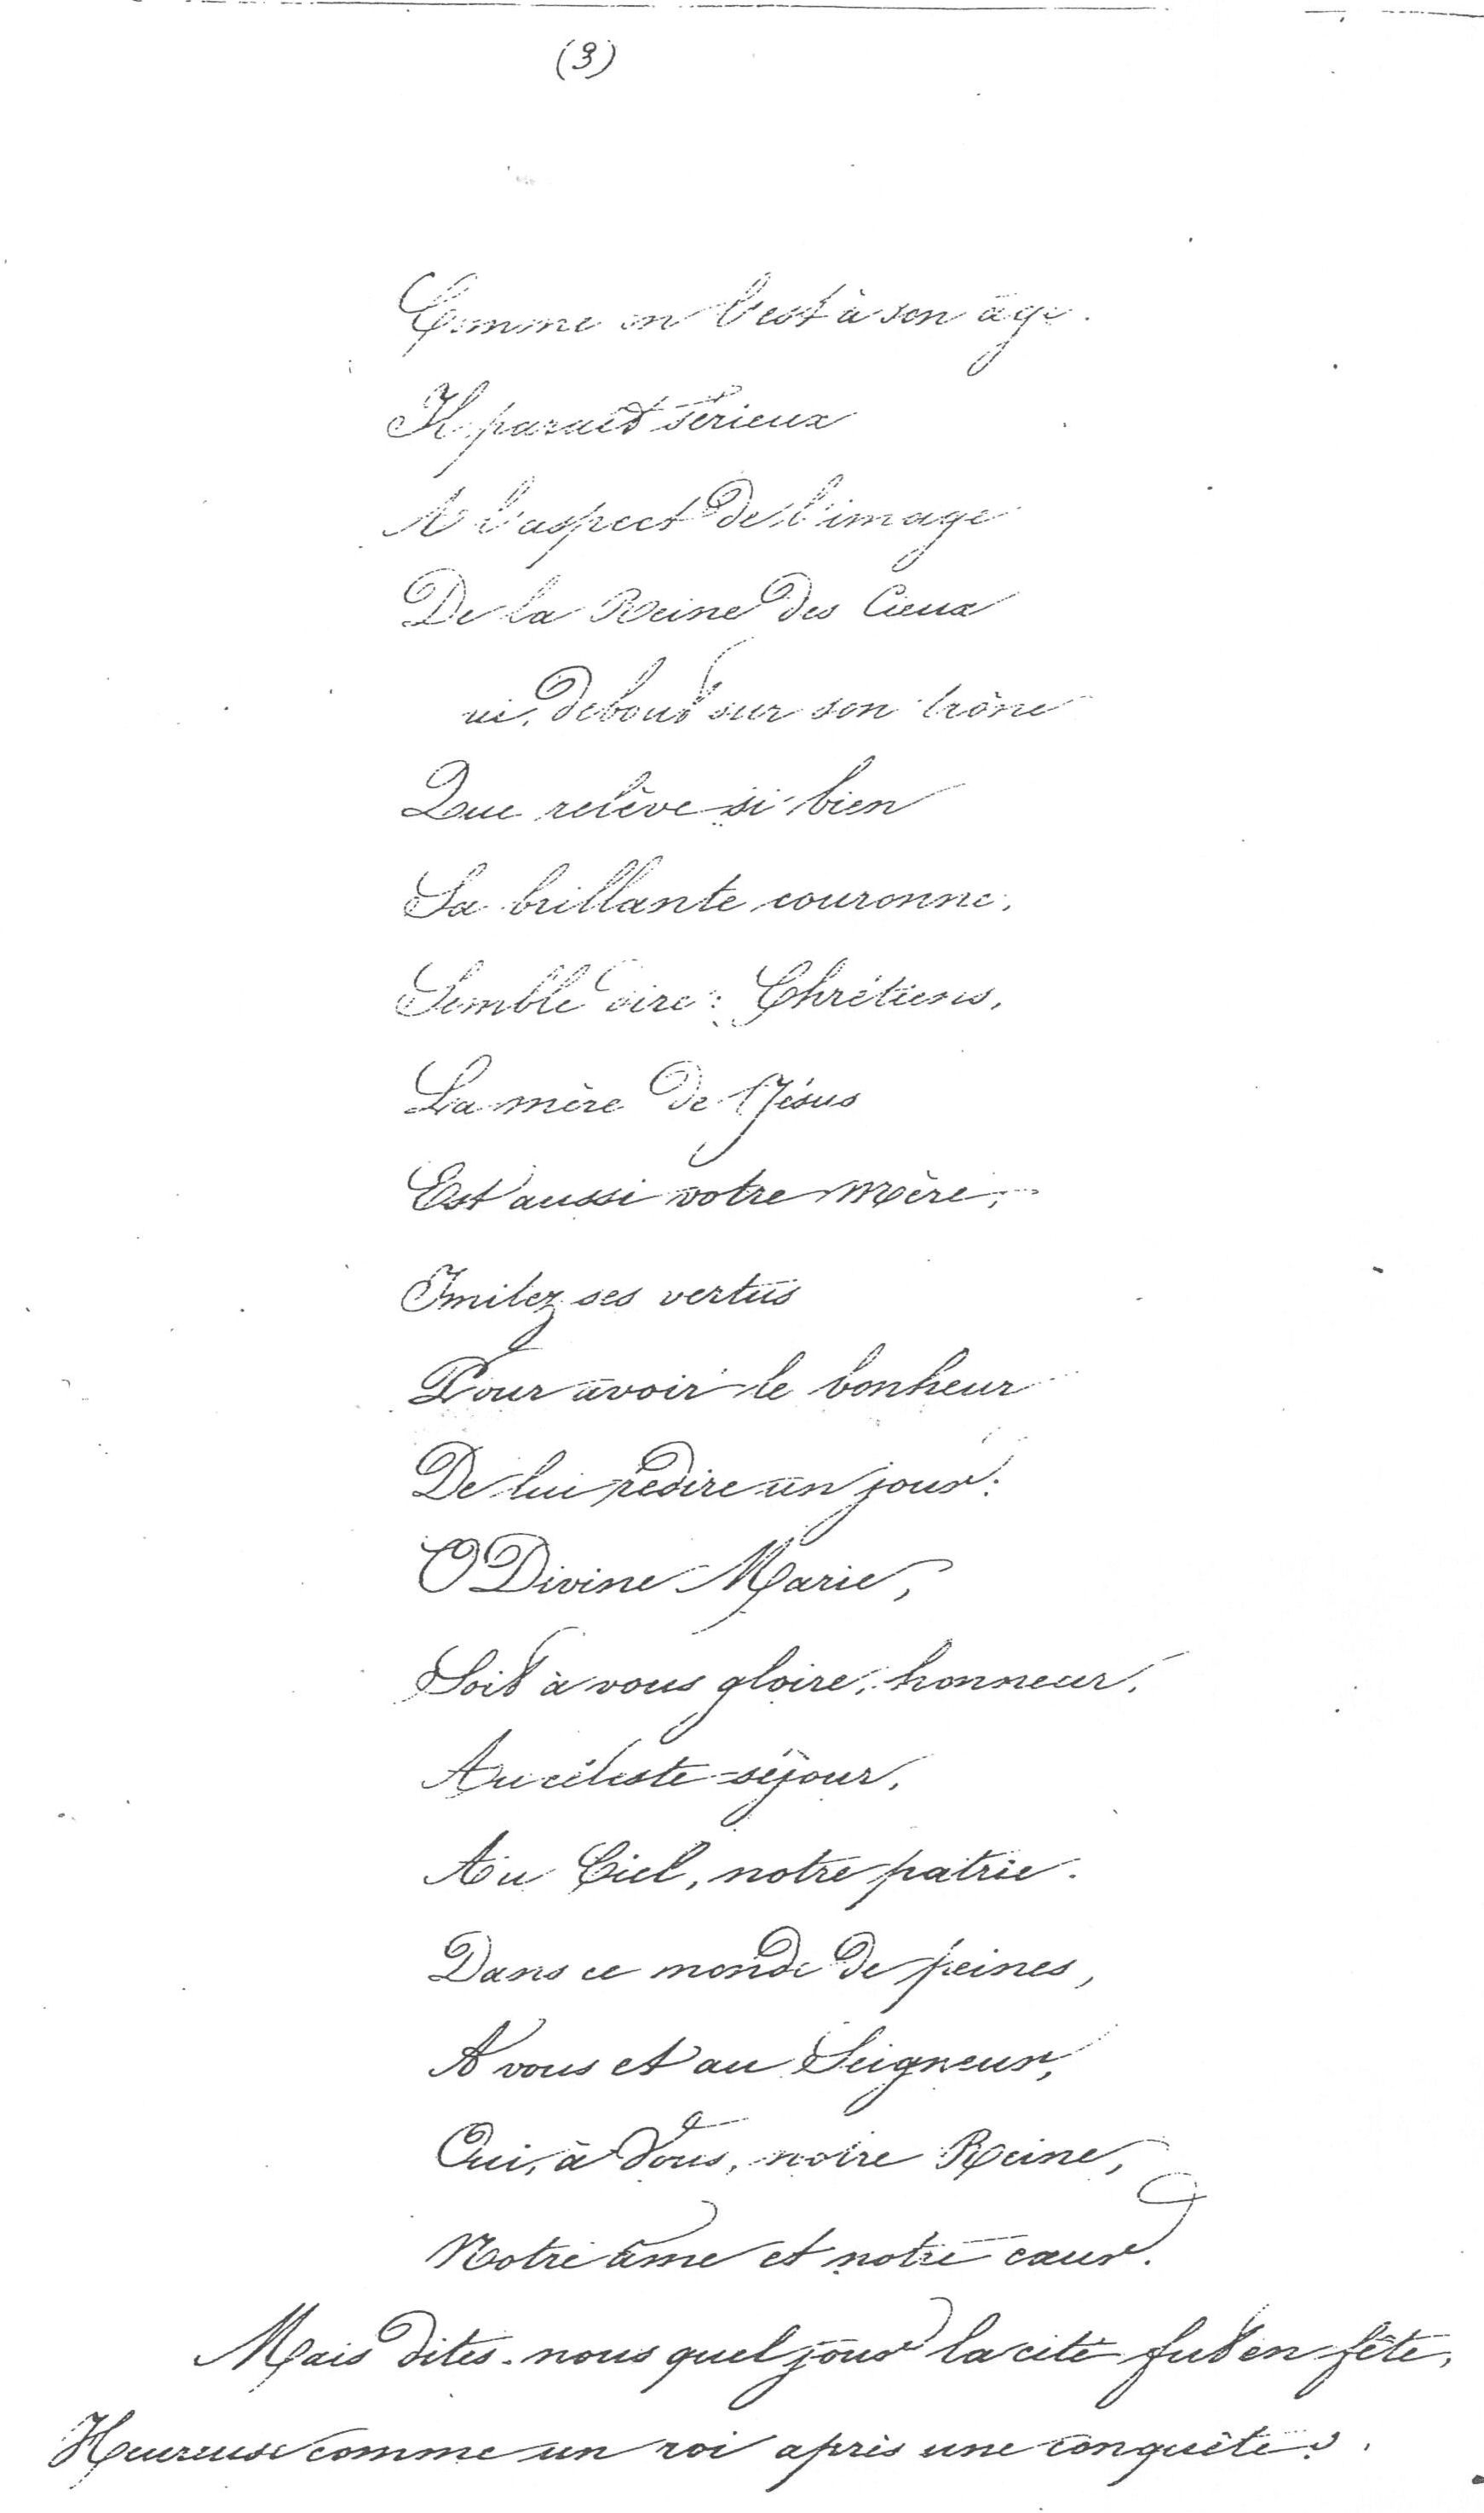 (3)
Comme on l'est à son âge.
Il paraît sérieux
A l'aspect de l'image
De la Reine des Cieux
ui, debout sur son trône
Que relève si bien
Sa brillante couronne,
Semble dire : Chrétiens,
La mère de Jésus
Est aussi votre mère,
Imitez ses vertus
Pour avoir le bonheur
De lui redire un jour :
O Divine Marie,
Soit à vous gloire, honneur,
Au céleste séjour,
Au Ciel, notre patrie.
Dans ce monde de peines,
A vous et au Seigneur,
Oui, à Vous, notre Reine,
Notre âme et notre cœur.
Mais dites-nous quel jour la cité fut en fête,
Heureuse comme un roi après une conquête ?